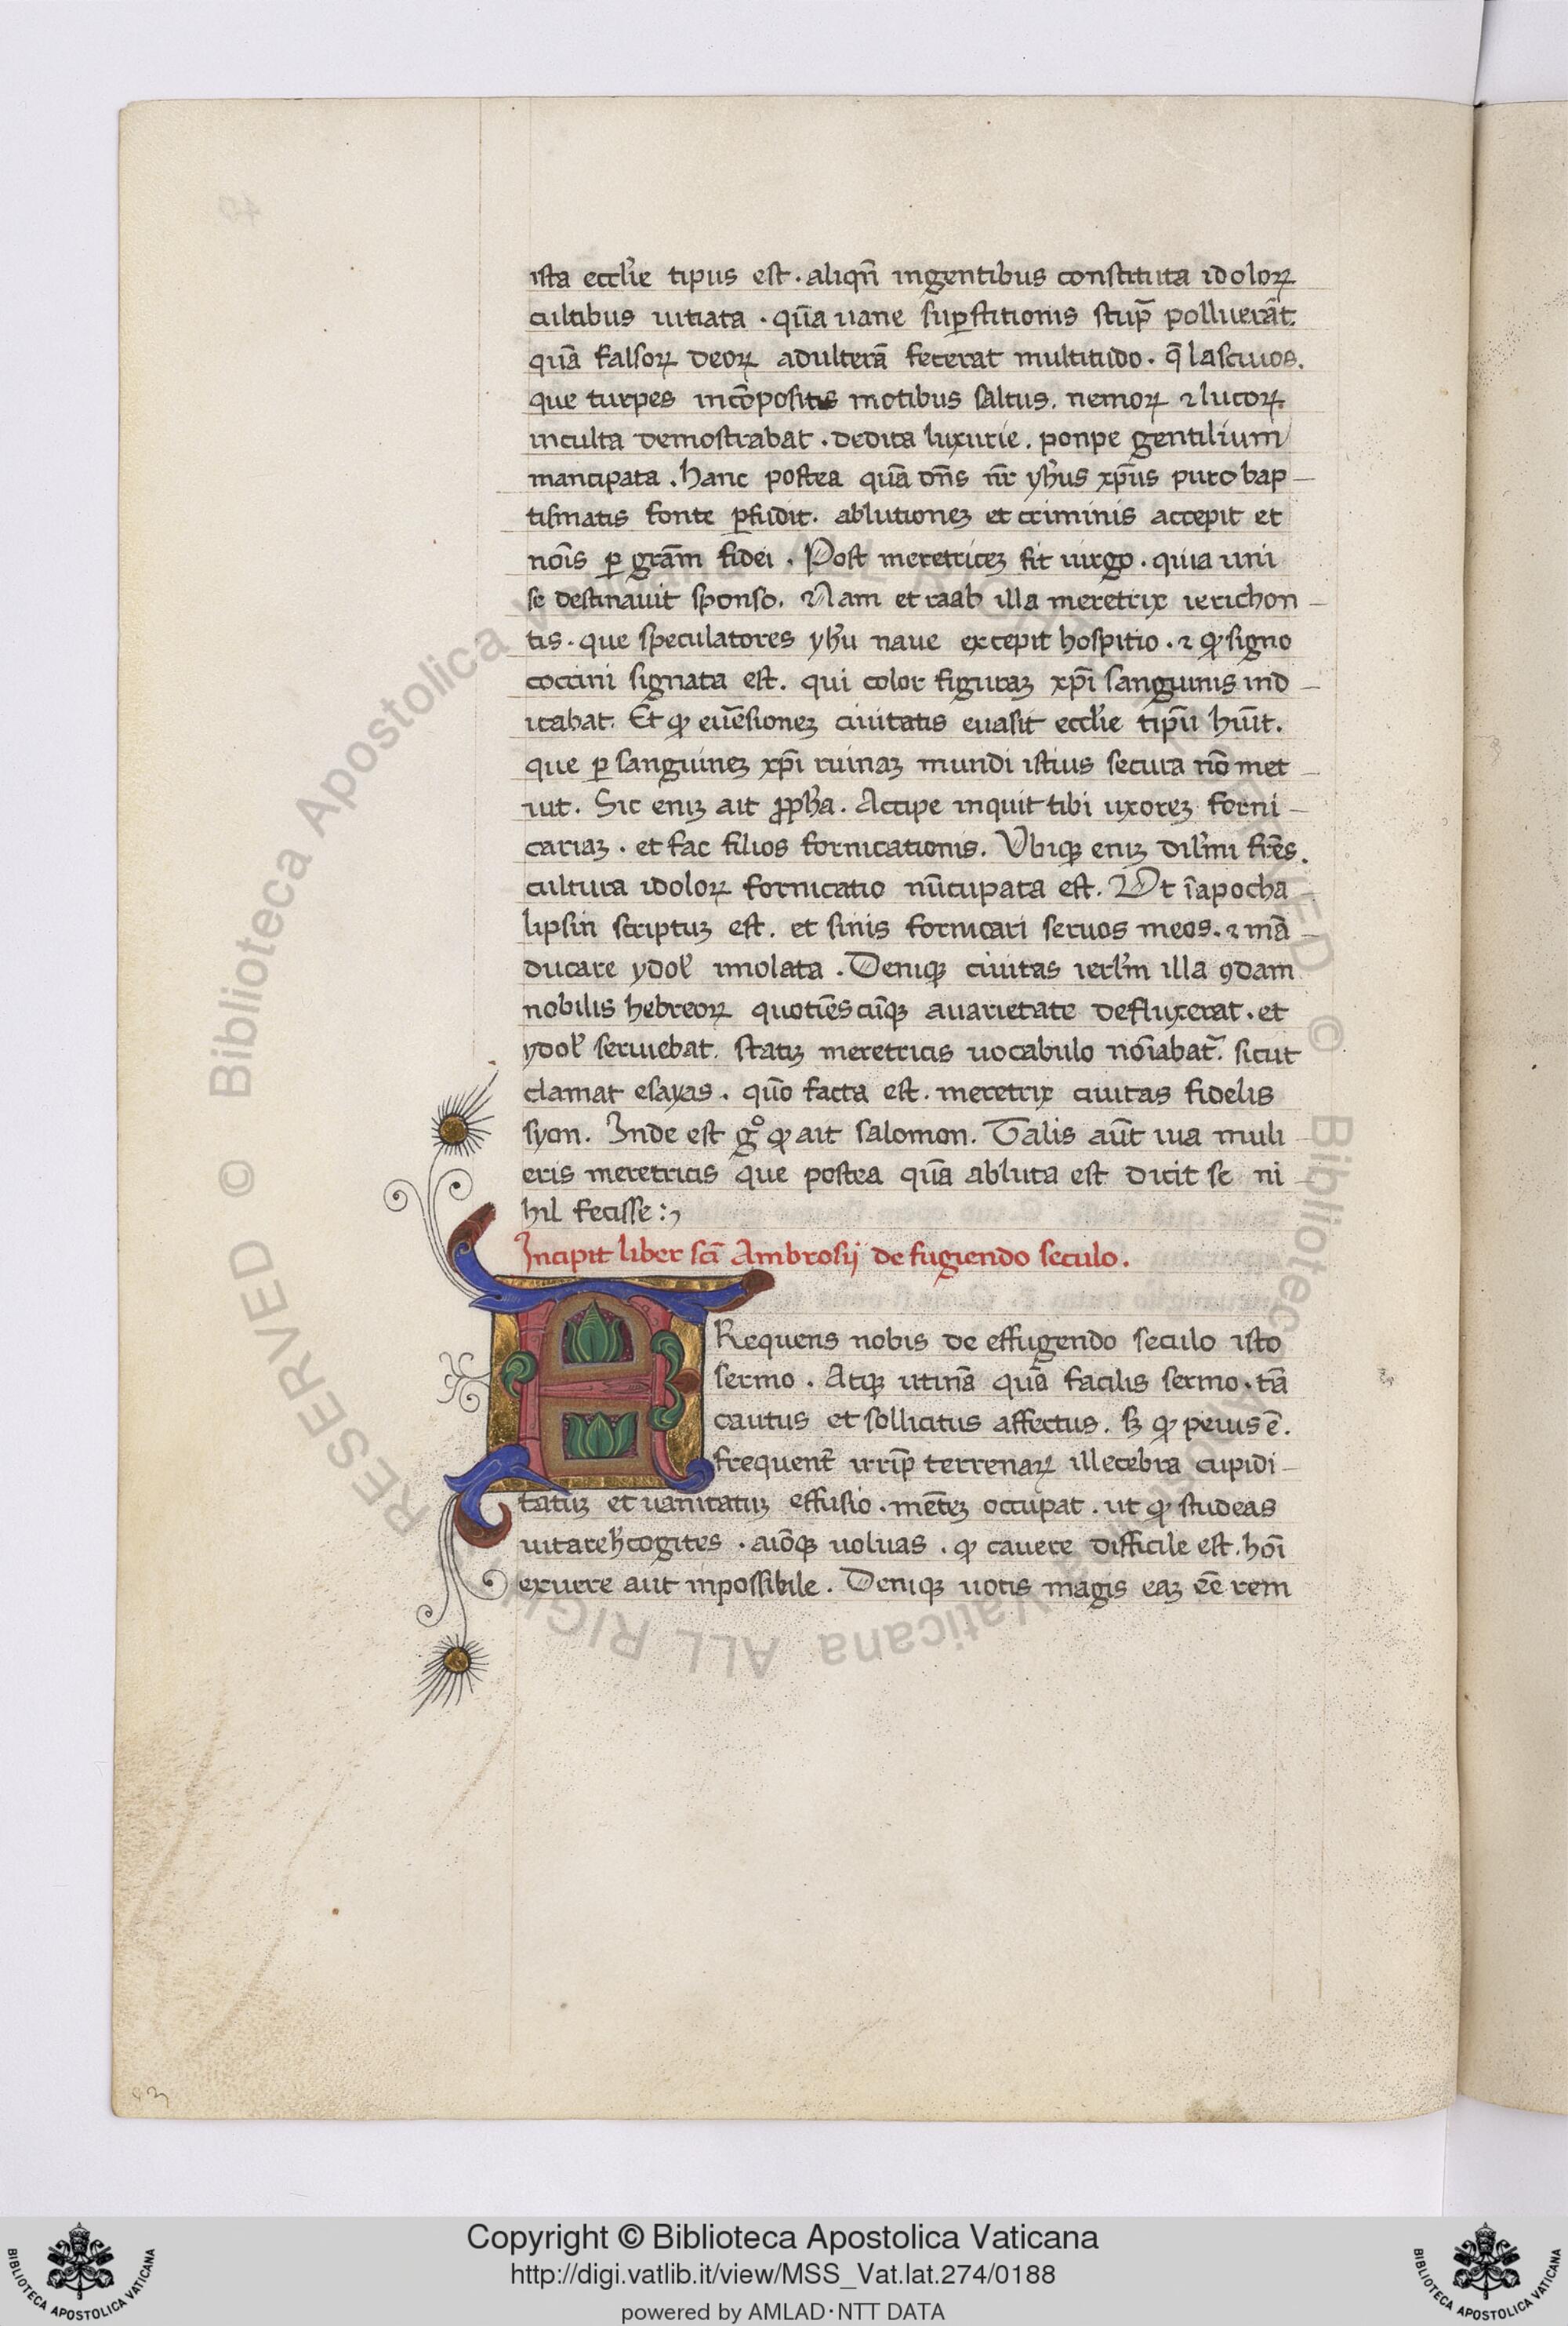 ista eccl̄ie tipus est . aliqn̄ in gentibus constituta idoloꝝ
cultibus uitiata . quā uane suꝑstitionis stup̄ polluerāt.
quā falsoꝝ deoꝝ adulterā fecerat multitudo . q̄ lasciuos.
que turpes incōpositis motibus saltus . nemoꝝ ⁊ lucoꝝ.
inculta demostrabat . dedita luxurie . ponpe gentilium
mancipata . hanc postea quā dn̄s nr̄ yhūs xp̄us puro bap-
tismatis fonte ꝑfudit . ablutioneꝫ et criminis accepit et
noīs ꝑ grām fidei . Post meretriceꝫ fit uirgo . quia uni
se destinauit sponso . Nam et raab illa meretrix ierichon-
tis . que speculatores yhū naue excepit hospitio . ⁊ ꝙ signo
coccini signata est . qui color figuraꝫ xp̄i sanguinis ind-
icabat . Et ꝙ eūsioneꝫ ciuitatis euasit eccl̄ie tipū hūit .
que ꝑ sanguineꝫ xp̄i ruinaꝫ mundi istius secura nō met-
iut . Sic eniꝫ ait ꝓpħa . Accipe inquit tibi uxoreꝫ forni-
cariaꝫ . et fac filios fornicationis . Vbiqꝫ eniꝫ dil̄mi fr̄es.
cultura idoloꝝ fornicatio nūcupata est . Vt ī apocha
lipsin scriptuꝫ est . et sinis fornicari seruos meos . ⁊ mā-
ducare ydol̄ imolata . Deniqꝫ ciuitas ierl̄m illa ꝯdam
nobilis hebreoꝝ quotiēscūqꝫ auarietate defluxerat . et
ydol̄ seruiebat . statiꝫ meretricis uocabulo noīabat̄ . sicut
clamat esayas . quō facta est . meretrix ciuitas fidelis
syon . Inde est gͦ ꝙ ait salomon . Talis aūt uia muli-
eris meretricis que postea quā abluta est dicit se ni-
hil fecisse :
Incipit liber scī Ambrosij de fugiendo seculo .
FRequens nobis de effugendo seculo isto
sermo . Atqꝫ utinā quā facilis sermo . tā
cautus et sollicitus affectus . sꝫ ꝙ peius ē .
frequent̄ irrip̄ terrenaꝝ illecebra cupidi-
tatuꝫ et uanitatuꝫ effusio . mēteꝫ occupat . ut ꝙ studeas
uitare ħ cogites . aiōqꝫ uoluas . ꝙ cauere difficile est . hoī
exuere aut inpossibile . Deniqꝫ uotis magis eaꝫ eē rem
Copyright © Biblioteca Apostolica Vaticana
http://digi.vatlib.it/view/MSS_Vat.lat.274/0188
powered by AMLAD·NTT DATA
BIBLIOTECA APOSTOLICA VATICANA
BIBLIOTECA APOSTOLICA VATICANA